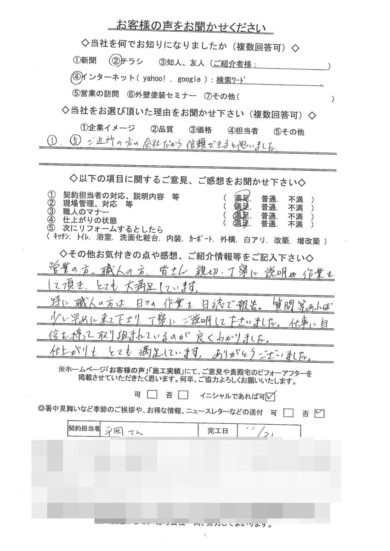 お客様の声をお聞かせください
◇当社を何でお知りになりましたか（複数回答可）◇
①新聞 ②チラシ ③知人、友人（ご紹介者様： ）
④インターネット（yahoo！、google）：検索ワード
⑤営業の訪問 ⑥外壁塗装セミナー ⑦その他（ ）
◇当社をお選び頂いた理由をお聞かせ下さい（複数回答可）◇
①企業イメージ ②品質 ③価格 ④担当者 ⑤その他
① ⑤ ご近所の方の会社だから信頼できると思いました
◇以下の項目に関するご意見、ご感想をお聞かせ下さい◇
① 契約担当者の対応、説明内容 等 （満足. 普通. 不満 ）
② 現場管理、対応 等 （満足. 普通. 不満 ）
③ 職人のマナー （満足. 普通. 不満 ）
④ 仕上がりの状態 （満足. 普通. 不満 ）
⑤ 次にリフォームするとしたら
（ キッチン. トイレ. 浴室. 洗面化粧台. 内装. カーポート. 外構. 白アリ. 改築. 増改築 ）
◇その他お気付きの点や感想、ご紹介情報等をご記入下さい◇
営業の方、職人の方、皆さん 親切、丁寧に説明や作業を
して頂き、とても大満足しています。
特に職人の方は日々の作業を日誌で報告。質問等あれば
少し早めに来て下さり 丁寧に ご説明して下さいました。仕事に自
信を持って取り組まれているのが良くわかりました。
仕上がりも とても満足しています。ありがとうございました。
※ホームページ「お客様の声」「施工実績」にて、ご意見や貴殿宅のビフォーアフターを
掲載させていただきたく思います。何卒、ご協力よろしくお願いいたします。
可 □ 否 □ イニシャルであれば可 ☑
◎暑中見舞いなど季節のご挨拶や、お得な情報、ニュースレターなどの送付 可 □ 否 ☑
契約担当者 平岡さん 完工日